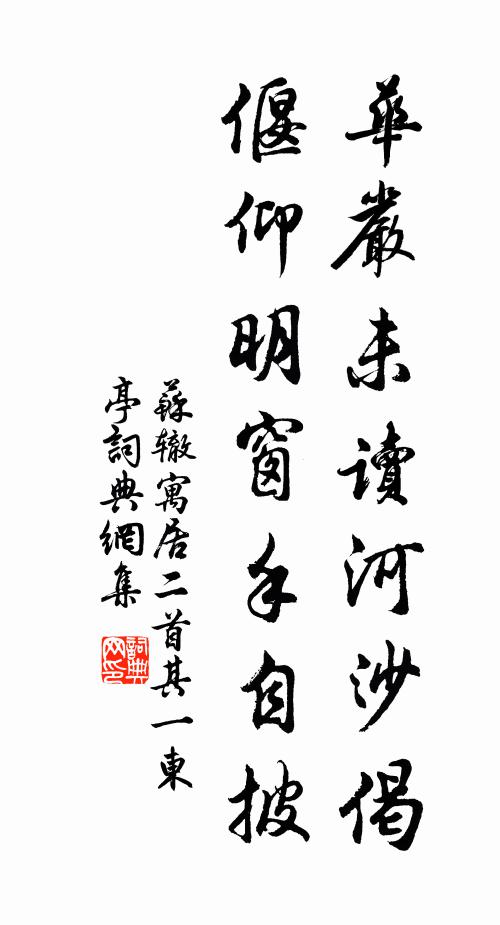 華嚴未讀河沙偈
偃仰明窗手自披
蘇辙寓居二首其一東
亭詞典網集
詞典
网印